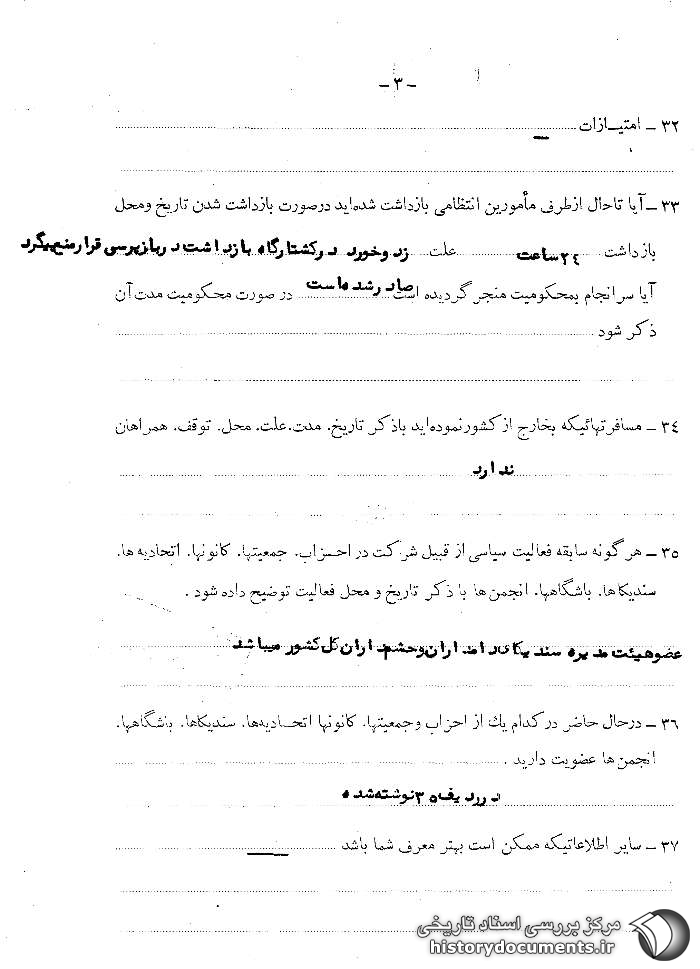 -۳-
۳۲ - امتیـازات
۳۳ - آیا تاحال ازطرف مأمورین انتظامی بازداشت شده‌اید درصورت بازداشت شدن تاریخ ومحل
بازداشت ۲٤ساعت علت زد وخورد در کشتارگاه بازداشت در بازپرسی قرار منع پیگرد
آیا سرانجام بمحکومیت منجر گردیده است صادر شده است در صورت محکومیت مدت آن
ذکر شود
۳٤ - مسافرتهائیکه بخارج از کشور نموده‌اید باذکر تاریخ، مدت، علت، محل، توقف، همراهان
ندارد
۳۵ - هرگونه سابقه فعالیت سیاسی از قبیل شرکت در احـزاب، جمعیتها، کانونها، اتحادیه ها،
سندیکاها، باشگاهها، انجمن ها با ذکر تاریخ و محل فعالیت توضیح داده شود .
عضو هیئت مدیره سندیکای دامداران وحشم داران کل کشور میباشد
۳۶ - درحال حاضر در کدام یك از احزاب وجمعیتها، کانونها اتحـادیه‌ها، سندیکاها، باشگاهها،
انجمن ها عضویت دارید .
در ردیف ۳۵ نوشته شده
۳۷ - سایر اطلاعاتیکه ممکن است بهتر معرف شما باشد
مرکز بررسی اسناد تاریخی
historydocuments.ir